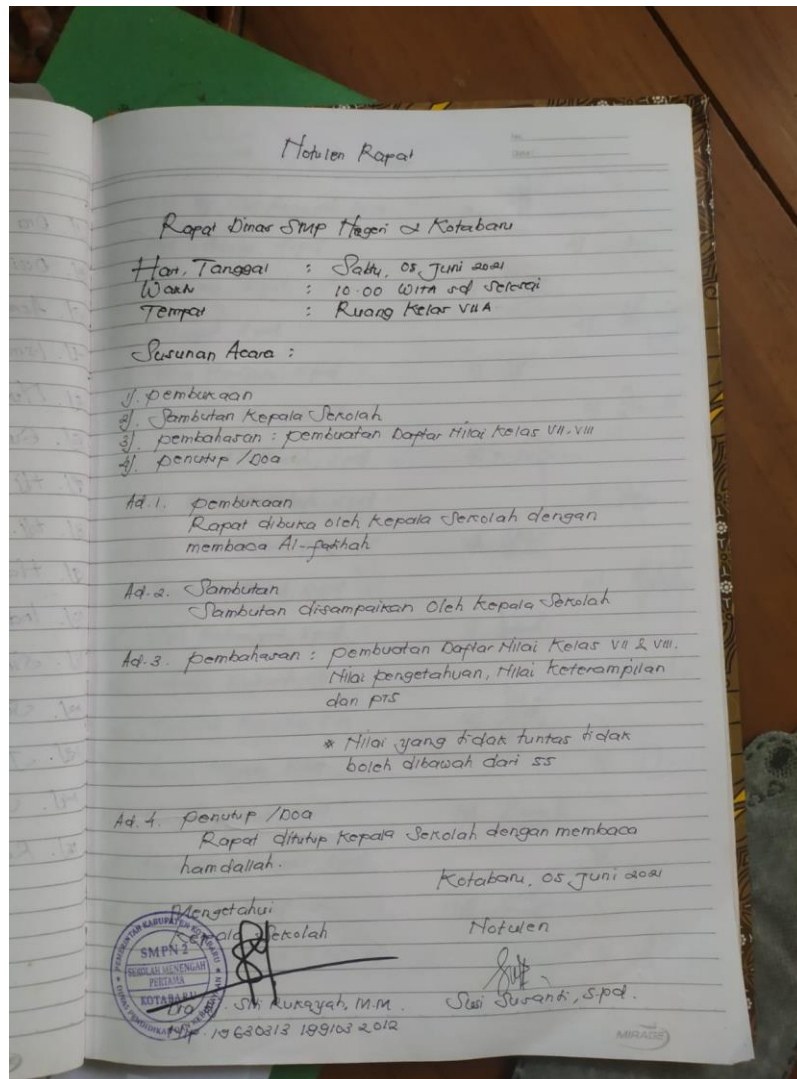 Notulen Rapat
Rapat Dinas SMP Negeri 2 Kotabaru
Hari, Tanggal : Sabtu, 05 Juni 2021
Waktu : 10.00 WITA sd selesai
Tempat : Ruang Kelas VII A
Susunan Acara :
1). pembukaan
2). Sambutan Kepala Sekolah
3). pembahasan : pembuatan Daftar Nilai Kelas VII-VIII
4). penutup / Doa
Ad. 1. pembukaan
Rapat dibuka oleh Kepala Sekolah dengan
membaca Al-fatihah
Ad. 2. Sambutan
Sambutan disampaikan oleh Kepala Sekolah
Ad. 3. pembahasan : pembuatan Daftar Nilai Kelas VII & VIII.
Nilai pengetahuan, Nilai Keterampilan
dan PTS
* Nilai yang tidak tuntas tidak
boleh dibawah dari 55
Ad. 4. penutup / Doa
Rapat ditutup Kepala Sekolah dengan membaca
hamdallah.
Kotabaru, 05 Juni 2021
Mengetahui
Kepala Sekolah
Notulen
PEMERINTAH KABUPATEN KOTABARU
SMPN 2
SEKOLAH MENENGAH
PERTAMA
KOTABARU
Siti Rukayah, M.M.
Susi Susanti, S.pd.
Nip. 19630313 199103 2012
MIRAGE